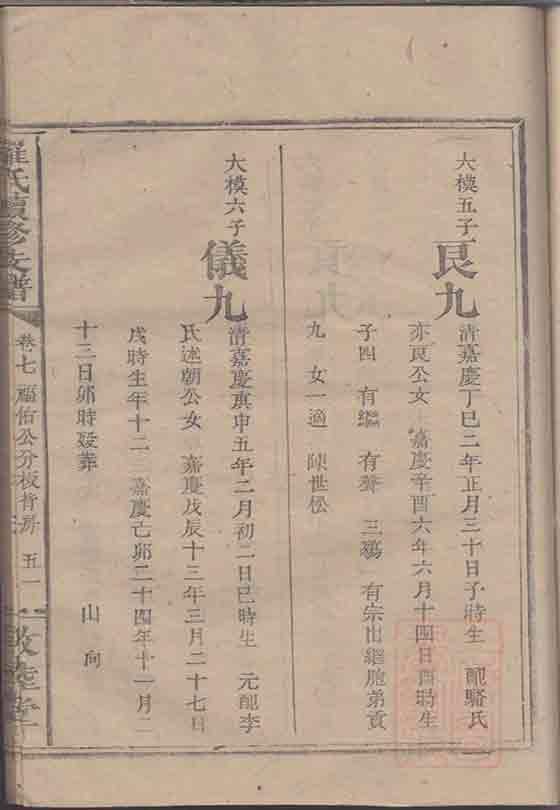 大模五子
艮九
清嘉慶丁巳二年正月三十日子時生 配駱氏
亦艮公女 嘉慶辛酉六年六月十四日酉時生
子四 有繼 有聲 三鷄 有宗出繼胞弟貢
九 女一適 陳世松
大模六子
儀九
清嘉慶庚申五年二月初二日巳時生 元配李
氏述朝公女 嘉慶戊辰十三年三月二十七日
戌時生年十二 嘉慶己卯二十四年十一月二
十三日卯時歿葬 山向
羅氏續修支譜
卷七 福佑公分板背房 五一
敦睦堂